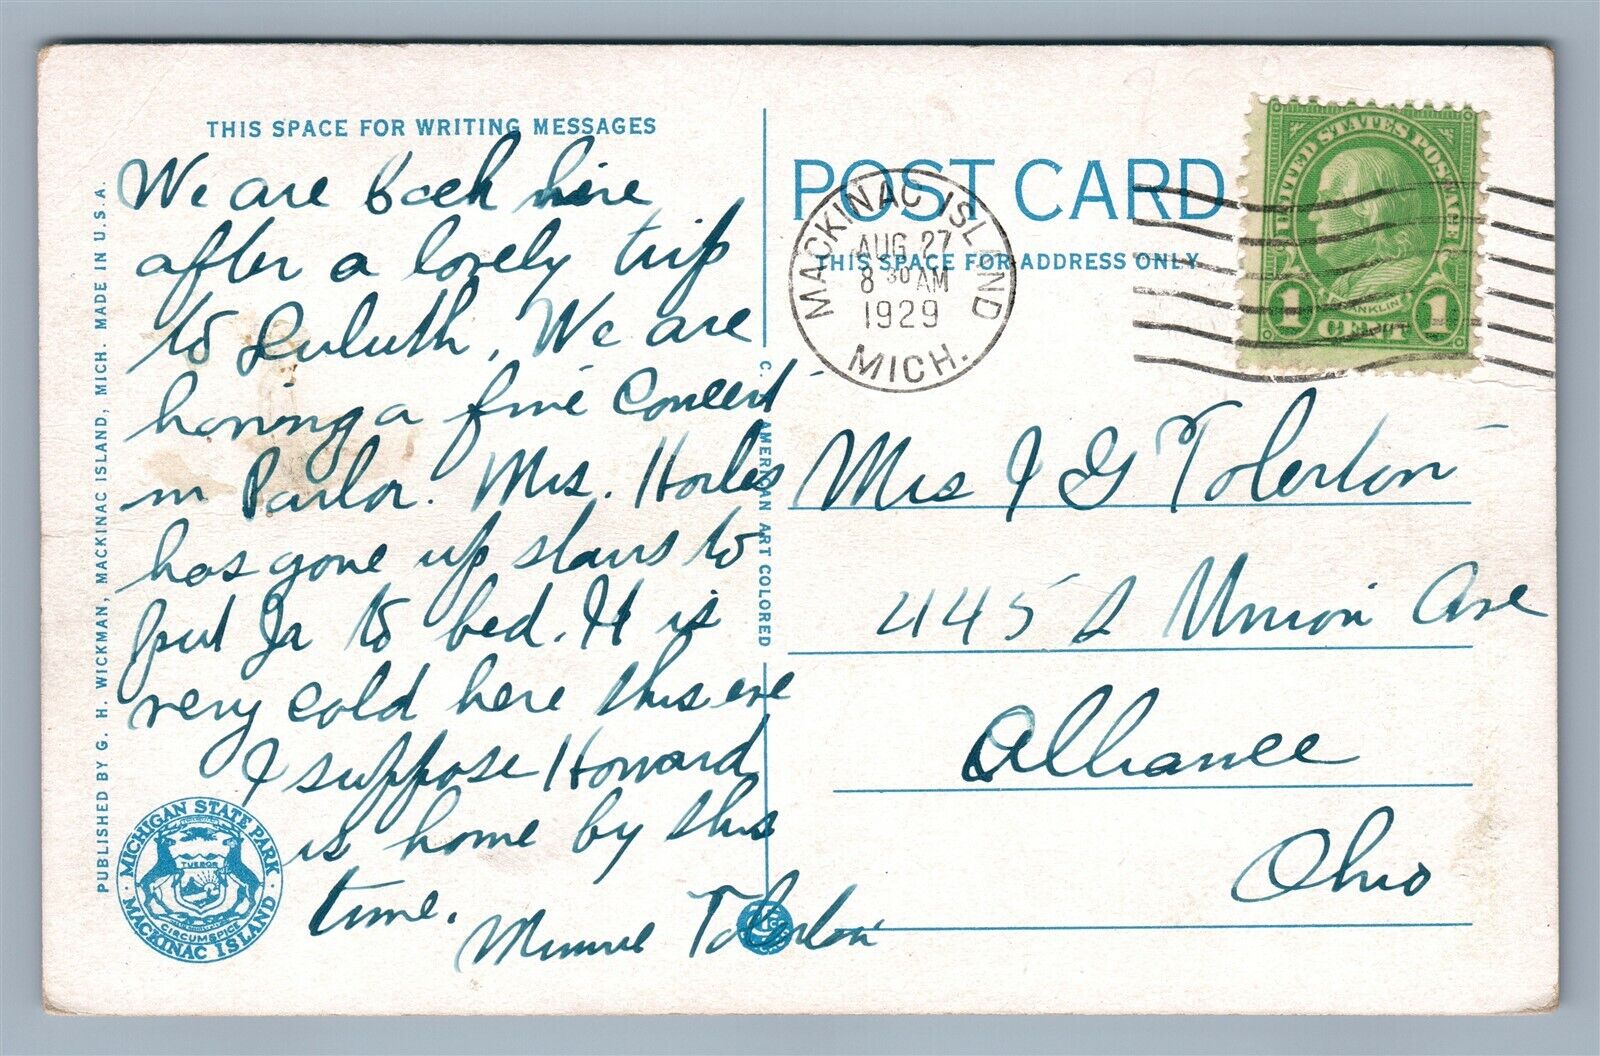 THIS SPACE FOR WRITING MESSAGES
We are back here
after a lovely trip
to Duluth. We are
having a fine Concert
in Parlor. Mrs.
has gone up stairs to
put Jr to bed. It is
very cold here this eve
I suppose Howard
is home by this
time.
Minnie Tolerton
PUBLISHED BY G. H. WICKMAN, MACKINAC ISLAND, MICH. MADE IN U.S.A.
MICHIGAN STATE PARK
TUEBOR
CIRCUMSPICE
MACKINAC ISLAND
C. AMERICAN ART COLORED
POST CARD
THIS SPACE FOR ADDRESS ONLY
MACKINAC ISLAND
AUG 27
8 30 AM
1929
MICH.
UNITED STATES POSTAGE
FRANKLIN
1 CENT 1
Mrs J G Tolerton
445 S Union Ave
Alliance
Ohio